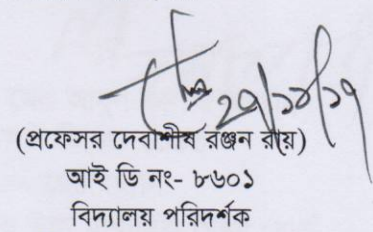 ২৭/১০/১৭
(প্রফেসর দেবাশীষ রঞ্জন রায়)
আই ডি নং- ৮৬০১
বিদ্যালয় পরিদর্শক